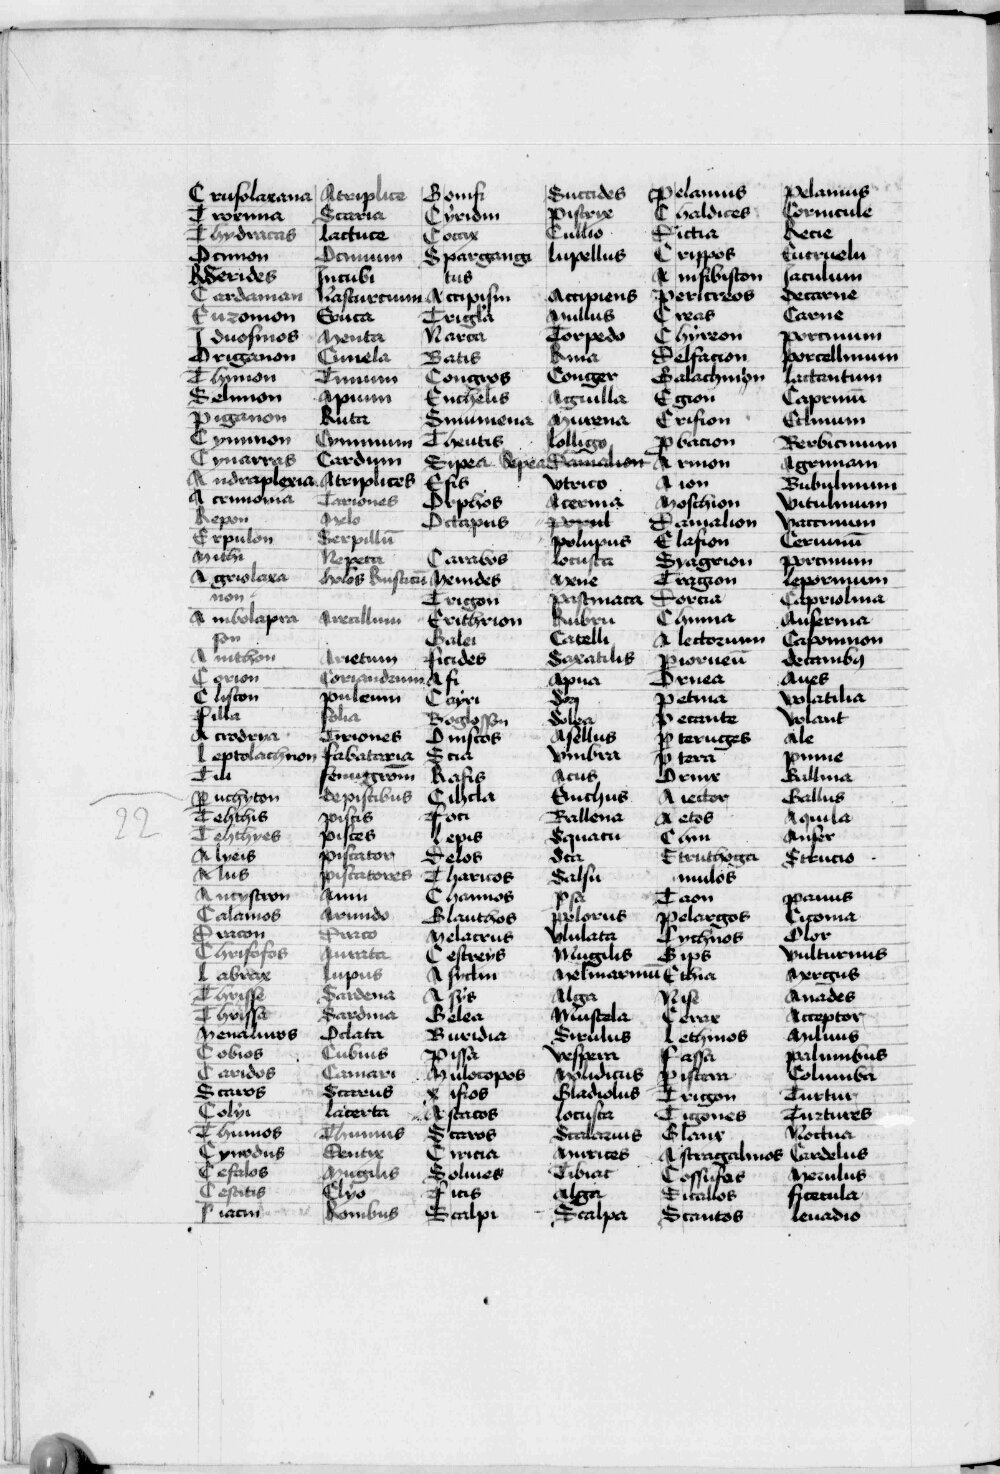 Crusolaxana Atriplice Bomfi Succides Pelamus Pelamus
Troxima Scaria Cyridin Pistrix Chaldices Cornicule
Thydracas lactuce Cocix Cullio Dictia Recie
Ocimon Ocimum Spargangi lupellus Crippos Cucruelu
Serides Incubi tus Amfibiston Iaculum
Cardaman Nasturcium Accipisin Accipiens Pericreos decarne
Euzomon Eruca Trigla Mullus Creas Carne
Iduosmos Menta Narca Torpedo Chyreon porcinum
Origanon Cunela Batis Raia Delfacion porcellinum
Thimon Timum Congros Conger Galachinon lactantum
Selinon Apium Enchelis Aguilla Egion Caprinū
Piganon Ruta Smimena Murena Erifion Edinum
Cyminon Cyminum Theutis lolligo Pbacion Berbicinum
Cynarras Cardum Sipea Sepea Damalion Arnion Agninam
Andraplexia Atriplices Efis Vtrico Aion Bubulinum
Acrimonia Tariones Orphos Acernia Moschion Vitulinum
Repon Melo Octapus popul Damalion Vaccinum
Erpulon Serpillū polupus Elafion Ceruinū
Mithi Nepeta Carabos locusta Syagrion porcinum
Agriolaxa holos Rusticū Menides Mene Tragion leporinum
non Trigon Pastinaca Dorcia Capriolina
Ambolapra Arcallium Erithrion Rubru Chinia Anserina
son Galei Catelli Alectorium Caponinon
Anithon Anetum ficides Saxatilis Piorneū decambꝫ
Corion Coriandrum Afi Apua Ornea Aues
Cliscon puleium Cayri Petina Volatilia
Filla folia Boglosson Solea Pecante Volant
Acrodria Tiriones Oniscos Asellus Pteruges Ale
Leptolachnon fabataria Scia Vmbra Ptera pinne
Tili fenugrecum Rafis Acus Ornix Gallina
Puchyton de piscibus Cihcla Enichus Alector Gallus
Tehthis piscis Foci Ballena Aetos Aquila
Tehthyes pisces Lepis Squatu Chin Anser
Alyeis piscator Delos Struthoga Strucio
Alus piscatores Tharicos Salsu mulos
Ancystron Amu Channos psa Taon pauus
Calamos Arundo Glauthos polorus Pelargos Ciconia
Dracon Draco Melacrus Vlulata Cychnos Olor
Chrisofos Aurata Cestreys Mugilis Gips Vulturnus
Labrax lupus Asyclin Melmarinū Ethia Mergus
Thrisse Sardena Asys Alga Nise Anades
Thrissa Sardina Gelea Mustela Cerax Acceptor
Menalinos Oclata Buridia Sirulus Lethinos Miluus
Cobios Cubius Pissa Vespera Fassa palumbus
Caridos Camari Mulocopos Moludicus Pistera Columba
Scaros Scarus xifios Gladiolus Trigon Turtur
Colyi lacerta Astacos locusta Tigones Turtures
Thinnos Thinnus Scaros Scalarius Glaux Noctua
Cynodus Dentix Ciricia Murices Astragalinos Cardelus
Cefalos Mugilis Solines Tibiat Cossufas Merulus
Cestitis Clyo Ficis Alga Sicallos ficetula
Rombus Scalpi Scalpa Scantos leuadio
22